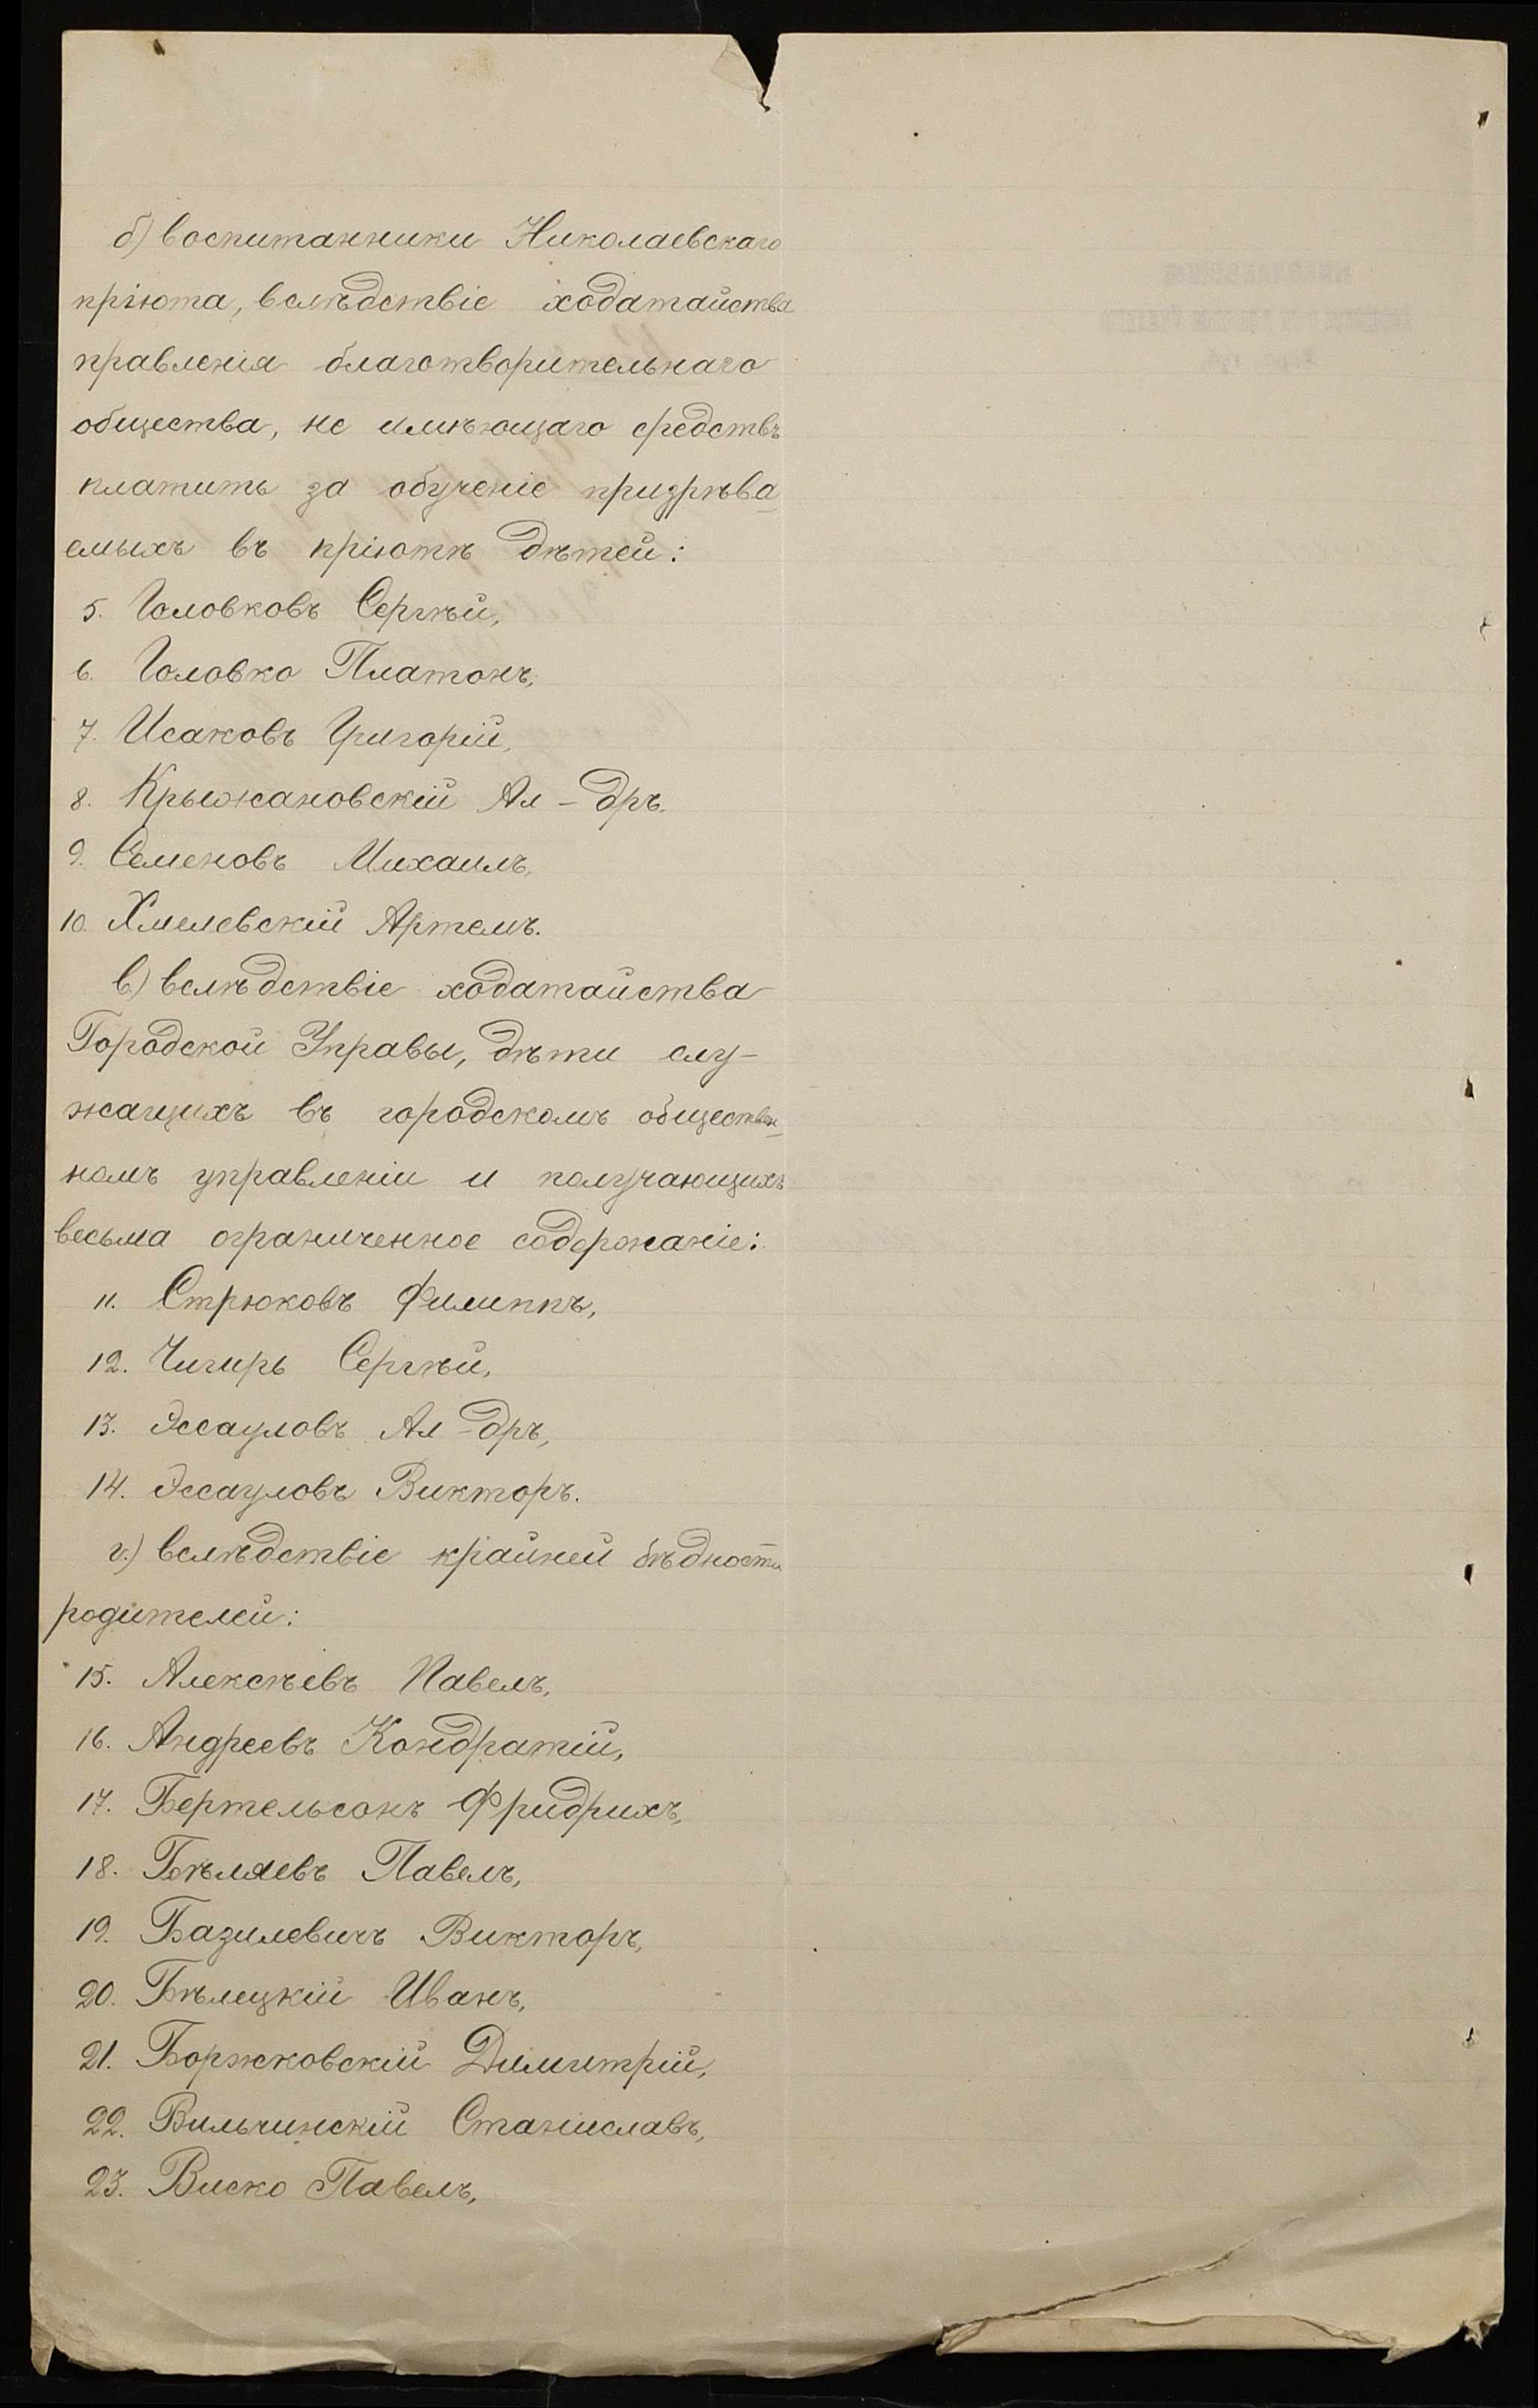 б) воспитанники Николаевскаго
пріюта, вслѣдствіе ходатайства
правленія благотворительнаго
общества, не имѣющаго средствъ
платить за обученіе призрѣва
емыхъ въ пріютѣ дѣтей:
5. Головковъ Сергѣй,
6. Головко Платонъ,
7. Исаковъ Григорій,
8. Крыжановскій Ал-дръ.
9. Семеновъ Михаилъ,
10. Хмелевскій Артемъ.
в) вслѣдствіе ходатайства
Городской Управы, дѣти слу-
жащихъ въ городскомъ обществен-
номъ управленіи и получающихъ
весьма ограниченное содержаніе:
11. Стрюковъ Филиппъ,
12. Чигирь Сергѣй,
13. Эссауловъ Ал-дръ,
14. Эссауловъ Викторъ.
г.) вслѣдствіе крайней бѣдности
родителей:
15. Алексѣевъ Павелъ,
16. Андреевъ Кондратій,
17. Бертельсонъ Фридрихъ,
18. Бѣляевъ Павелъ,
19. Базилевичъ Викторъ,
20. Бѣлецкій Иванъ,
21. Боржковскій Димитрій,
22. Вильчинскій Станиславъ,
23. Виско Павелъ,